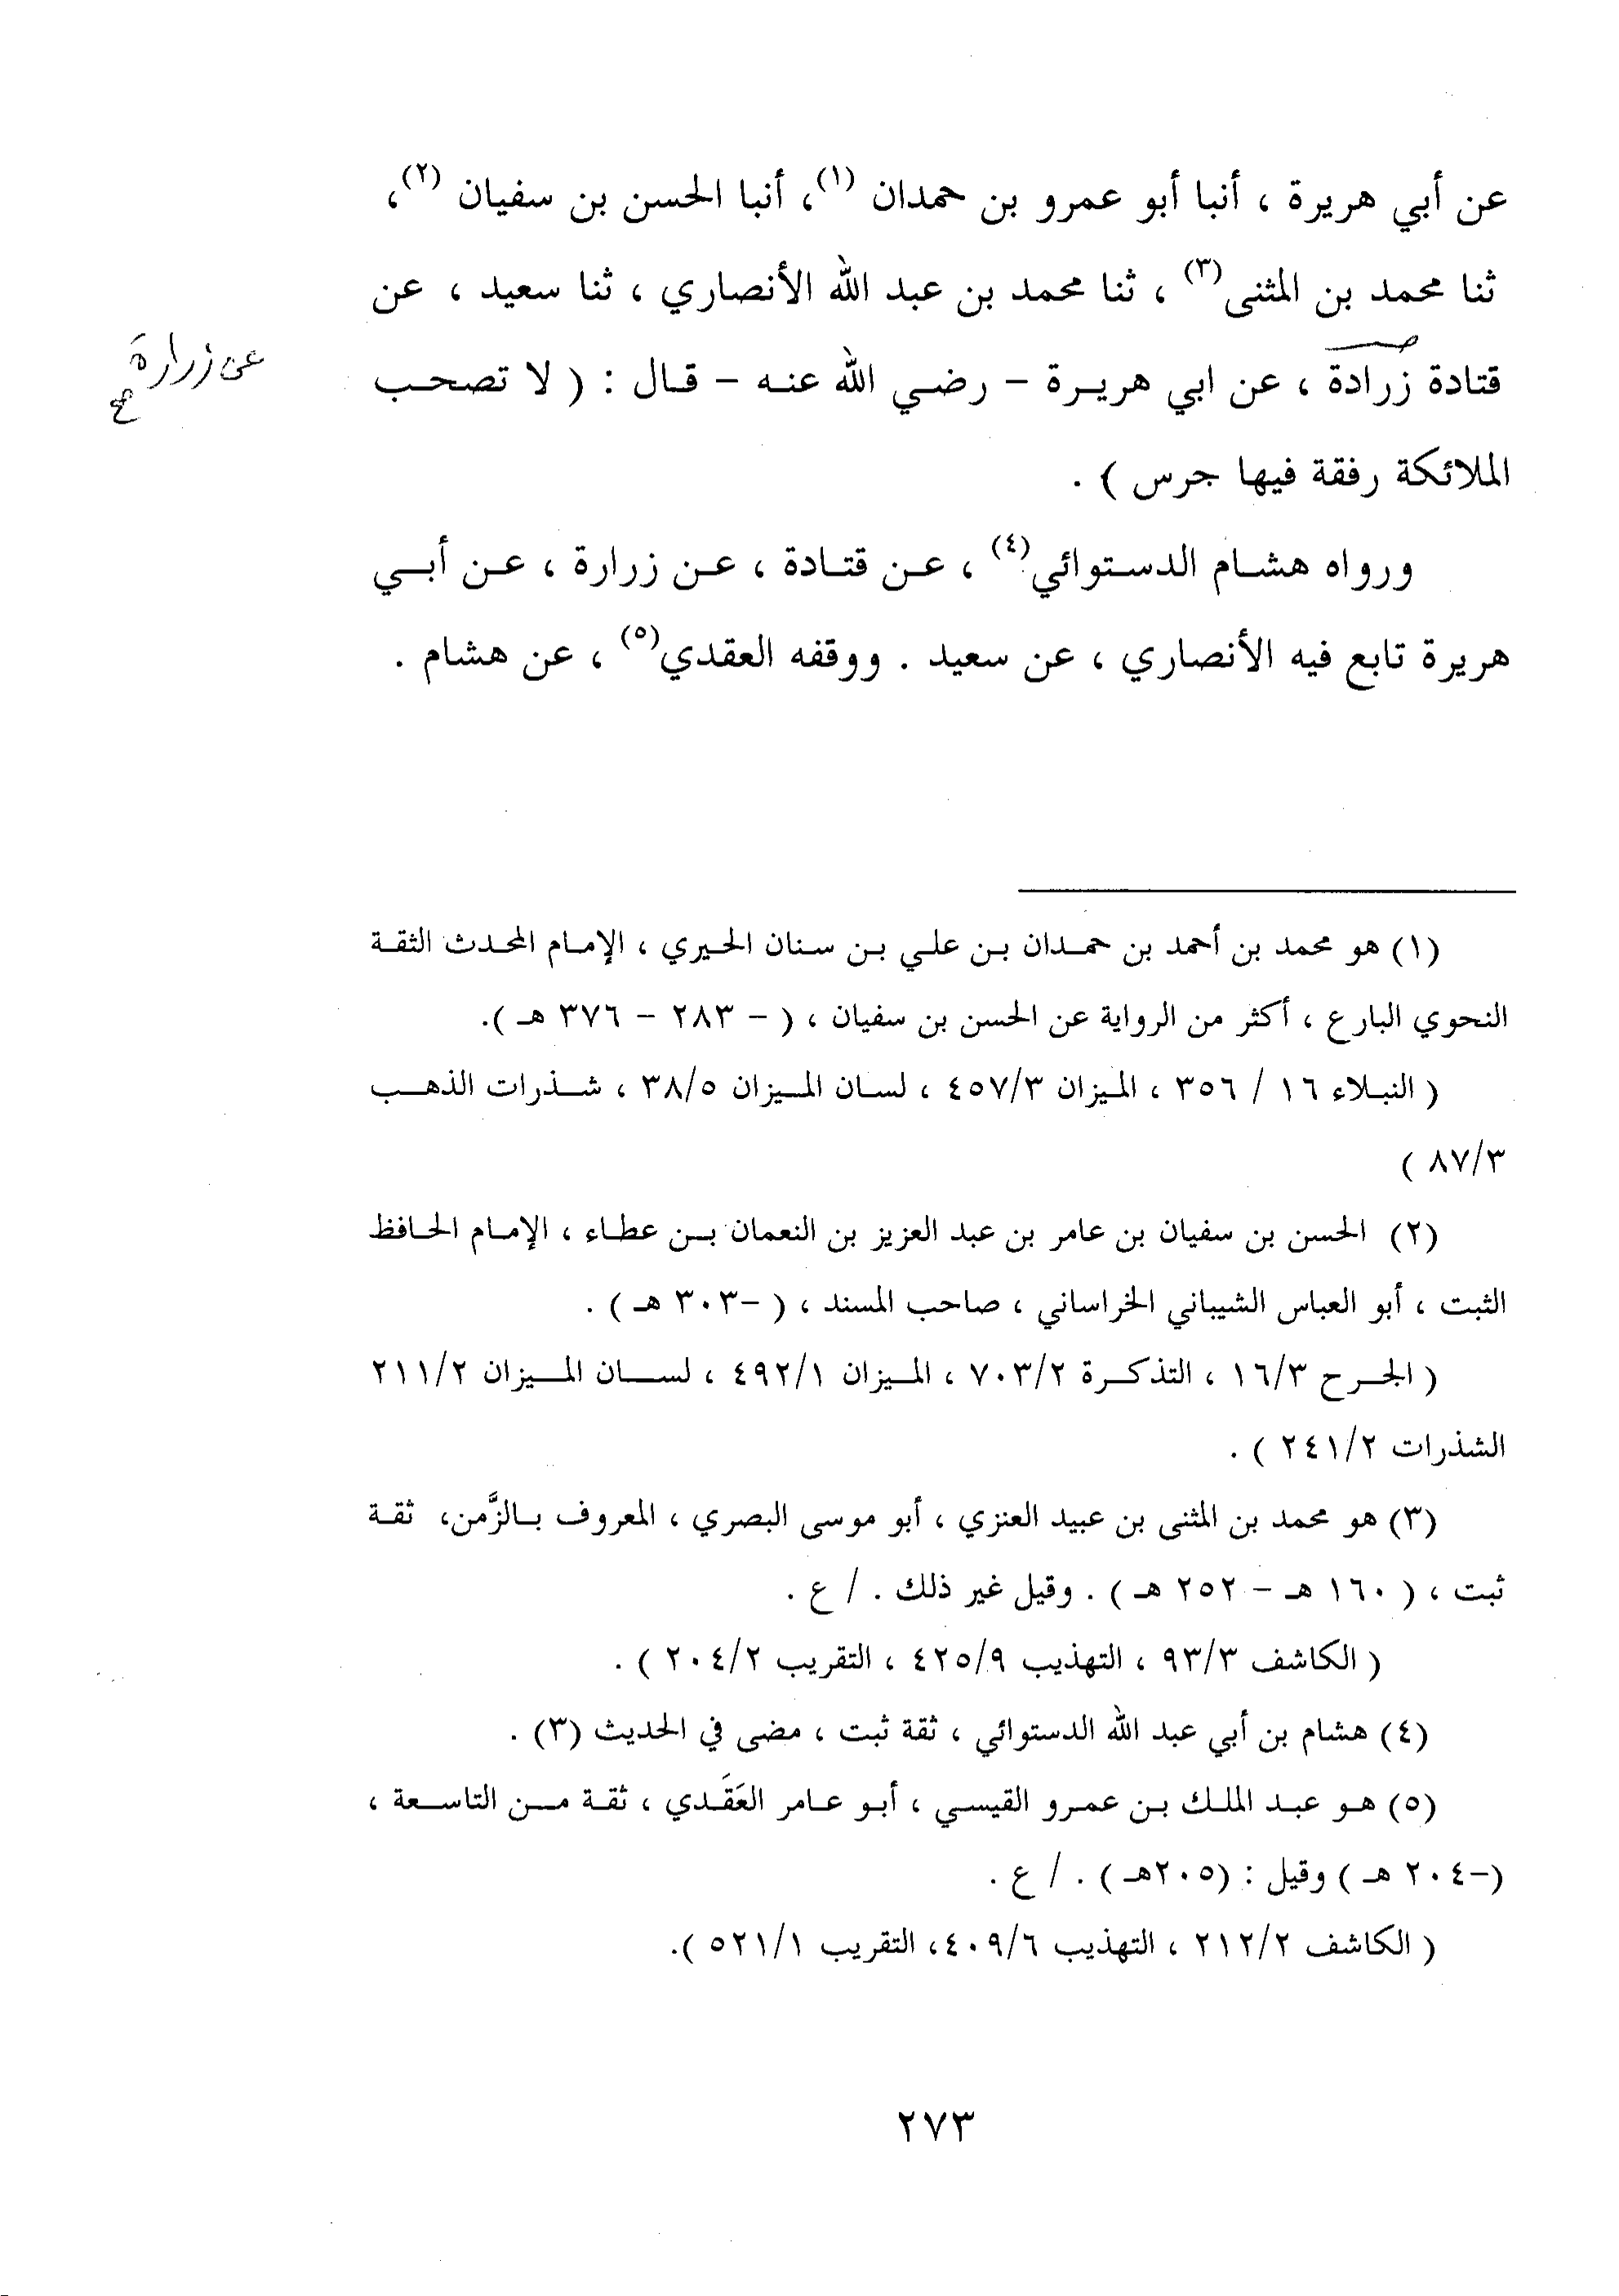 عن أبي هريرة ، أنبا أبو عمرو بن حمدان (١)، أنبا الحسن بن سفيان (٢)،
ثنا محمد بن المثنى(٣) ، ثنا محمد بن عبد الله الأنصاري ، ثنا سعيد ، عن
قتادة زرادة ، عن ابي هريـرة - رضـي الله عنـه - قـال : ( لا تصحـب
عن زرارة
الملائكة رفقة فيها جرس ) .
ورواه هشـام الدسـتوائي(٤) ، عـن قتـادة ، عـن زرارة ، عـن أبـي
هريرة تابع فيه الأنصاري ، عن سعيد . ووقفه العقدي(٥) ، عن هشام .
(١) هو محمد بن أحمد بن حمـدان بـن علـي بـن سـنان الحـيري ، الإمـام المحـدث الثقـة
النحوي البارع ، أكثر من الرواية عن الحسن بن سفيان ، ( - ٢٨٣ - ٣٧٦ هـ ).
( النبـلاء ١٦ / ٣٥٦ ، المـيزان ٤٥٧/٣ ، لسـان المـيزان ٣٨/٥ ، شـذرات الذهـب
٨٧/٣ )
(٢) الحسن بن سفيان بن عامر بن عبد العزيز بن النعمان بـن عطـاء ، الإمـام الحـافظ
الثبت ، أبو العباس الشيباني الخراساني ، صاحب المسند ، ( -٣٠٣ هـ ) .
( الجـرح ١٦/٣ ، التذكـرة ٧٠٣/٢ ، المـيزان ٤٩٢/١ ، لسـان المـيزان ٢١١/٢
الشذرات ٢٤١/٢ ) .
(٣) هو محمد بن المثنى بن عبيد العنزي ، أبو موسى البصري ، المعروف بـالزَّمن، ثقـة
ثبت ، ( ١٦٠ هـ - ٢٥٢ هـ ) . وقيل غير ذلك . / ع .
( الكاشف ٩٣/٣ ، التهذيب ٤٢٥/٩ ، التقريب ٢٠٤/٢ ) .
(٤) هشام بن أبي عبد الله الدستوائي ، ثقة ثبت ، مضى في الحديث (٣) .
(٥) هـو عبـد الملـك بـن عمـرو القيسـي ، أبـو عـامر العَقَـدي ، ثقـة مـن التاسـعة ،
(-٢٠٤ هـ ) وقيل : (٢٠٥هـ ) . / ع .
( الكاشف ٢١٢/٢ ، التهذيب ٤٠٩/٦، التقريب ٥٢١/١ ).
٢٧٣